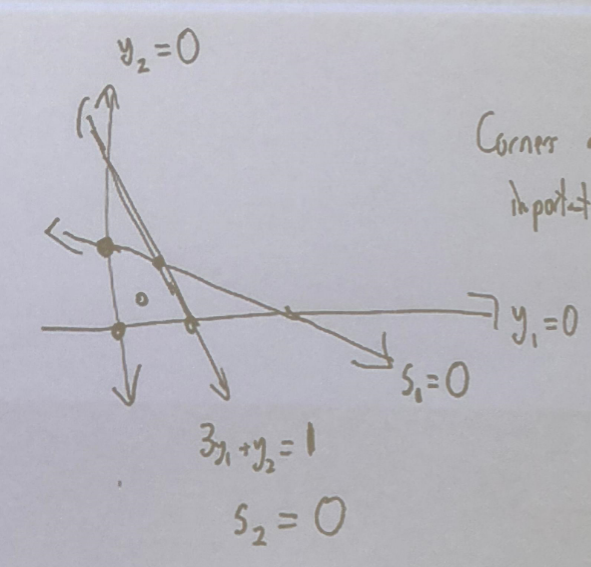 y₂ = 0
Corners
important
y₁ = 0
s₁ = 0
3y₁ + y₂ = 1
s₂ = 0